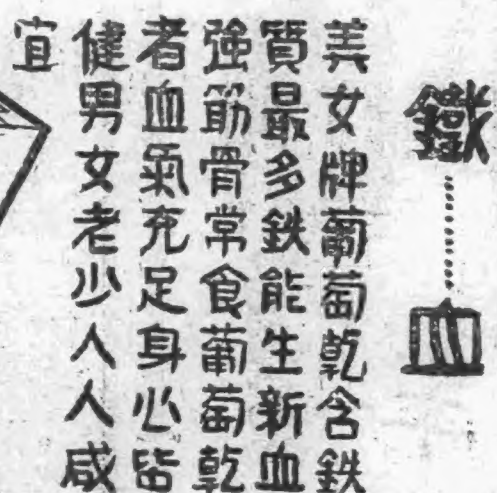 鐵……血
美女牌葡萄乾含鉄
質最多鉄能生新血
強筋骨常食葡萄乾
者血氣充足身心皆
健男女老少人人咸
宜